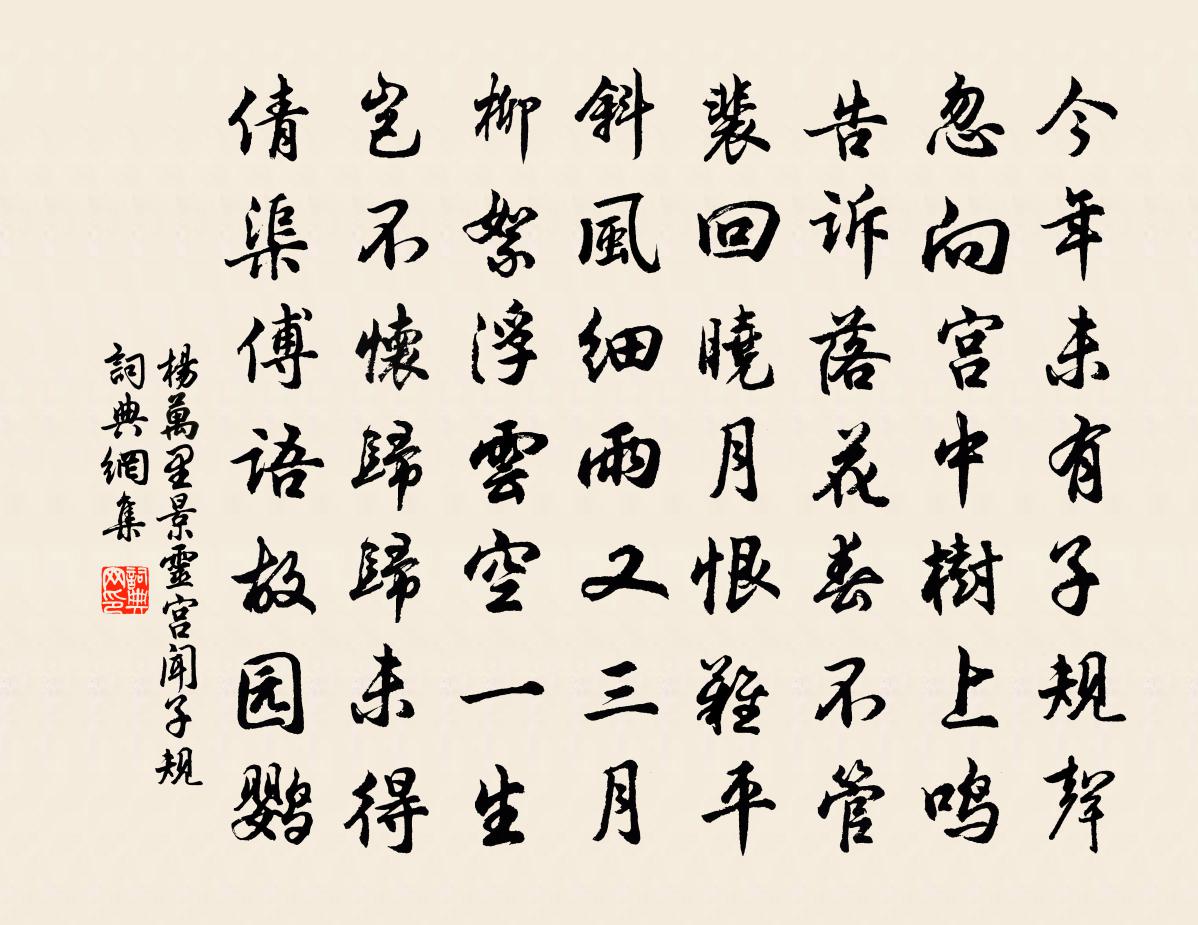 今年未有子規聲
忽向宫中樹上鳴
告诉落花春不管
裴回曉月恨難平
斜風細雨又三月
柳絮浮雲空一生
岂不懷歸歸未得
倩渠傅語故园鹦
楊萬里景靈宫闻子規
詞典網集
詞典